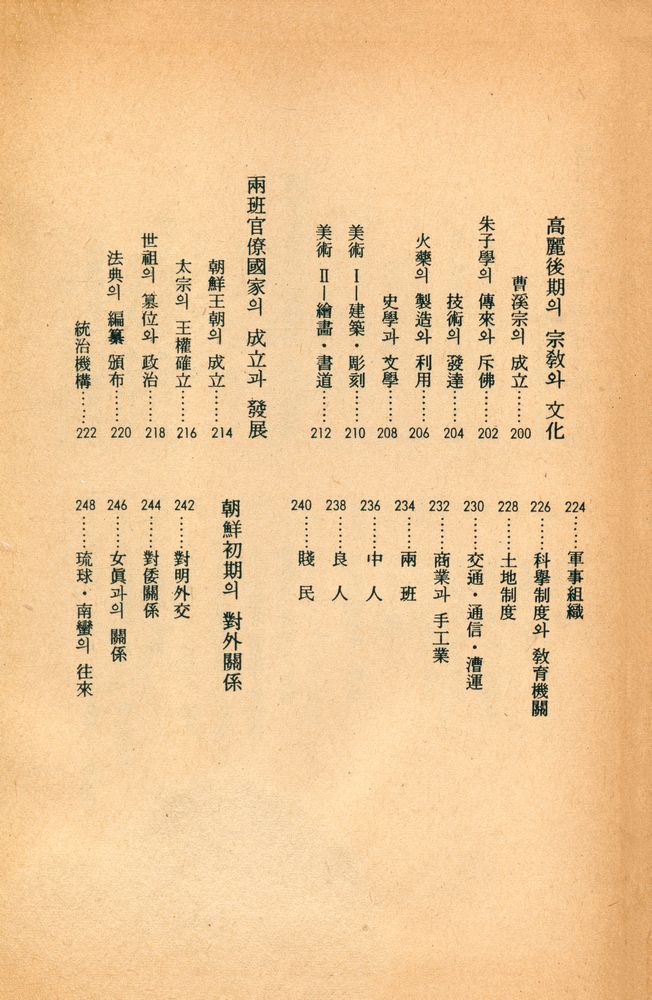 高麗後期의 宗敎와 文化
曹溪宗의 成立……200
朱子學의 傳來와 斥佛……202
技術의 發達……204
火藥의 製造와 利用……206
史學과 文學……208
美術 Ⅰ—建築・彫刻……210
美術 Ⅱ—繪畵・書道……212
兩班官僚國家의 成立과 發展
朝鮮王朝의 成立……214
太宗의 王權確立……216
世祖의 簒位와 政治……218
法典의 編纂 頒布……220
統治機構……222
224……軍事組織
226……科擧制度와 敎育機關
228……土地制度
230……交通・通信・漕運
232……商業과 手工業
234……兩 班
236……中 人
238……良 人
240……賤 民
朝鮮初期의 對外關係
242……對明外交
244……對倭關係
246……女眞과의 關係
248……琉球・南蠻의 往來